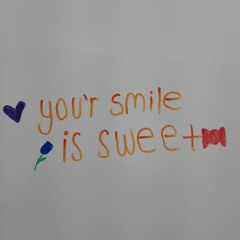 you'r smile
is sweet